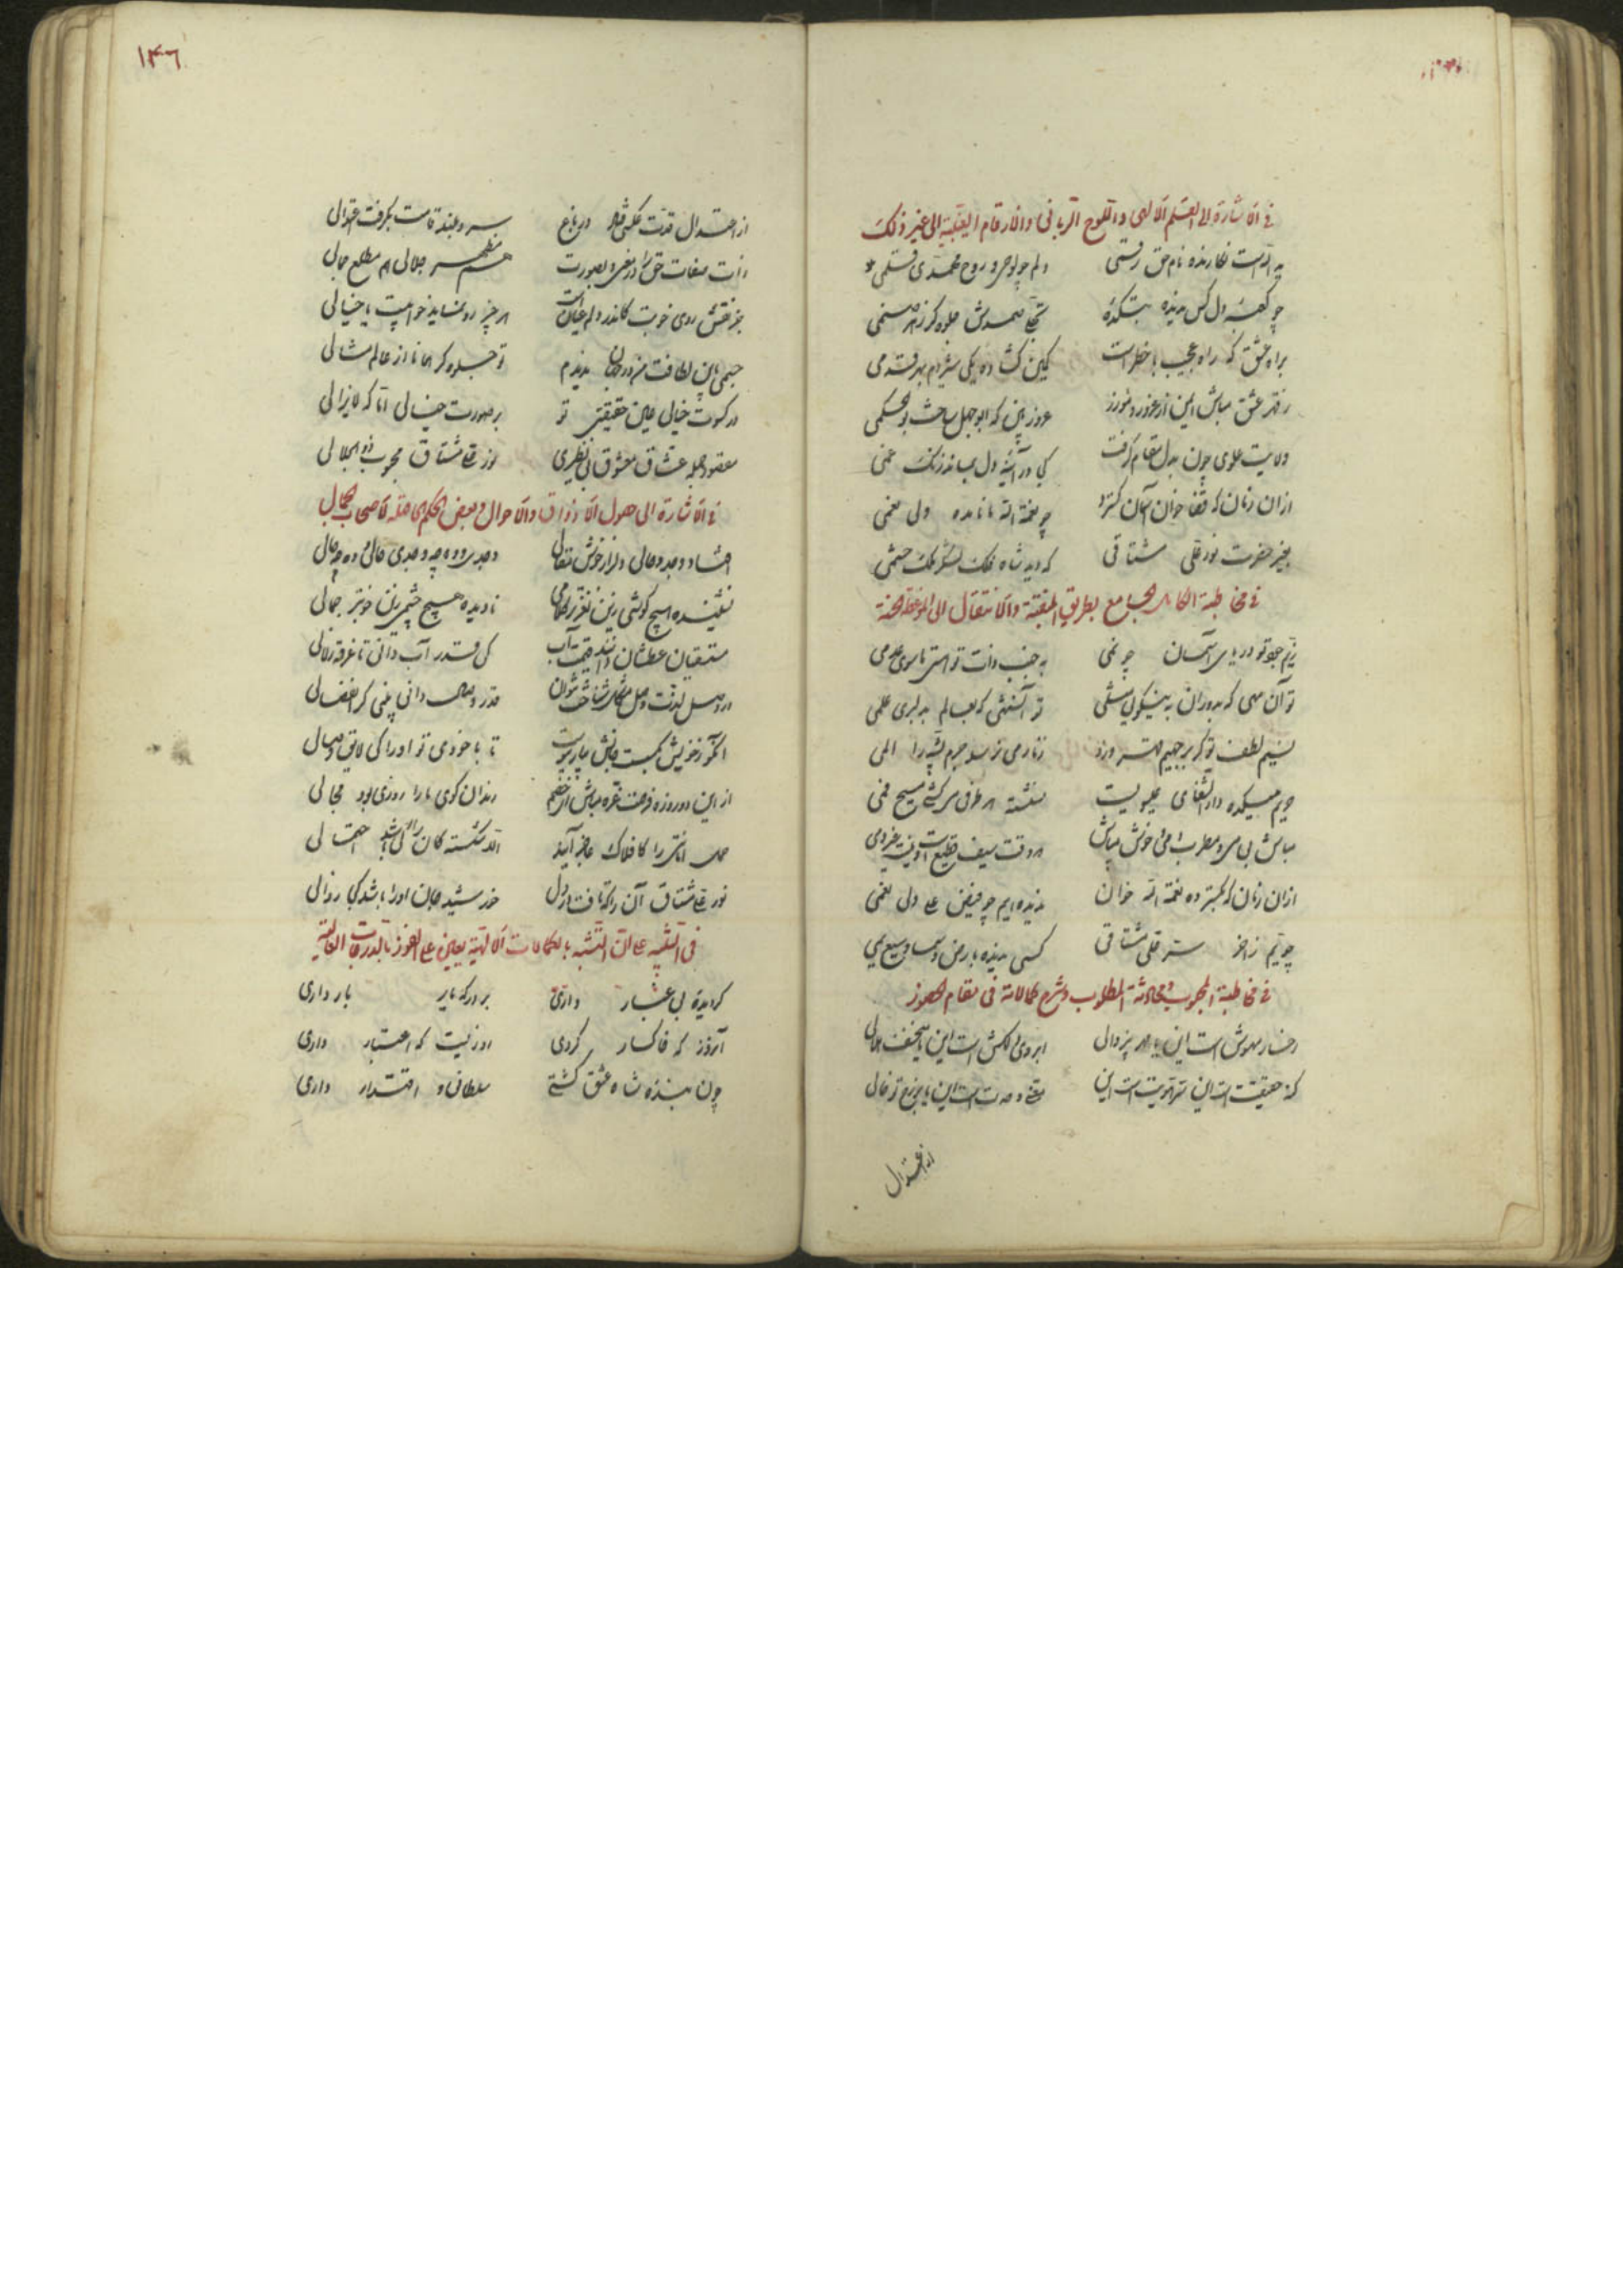 في الاشارة الى القلم الالهي و اللوح الرباني و الارقام الغيبية الى غير ذلك
يد الله است نگارنده نام حق رقمی دلم چو لوحی و روح محمدی قلمی
چو کعبه دل کس ندیده بتکدهٔ تجلی صمدش جلوه‌گر ز هر صنمی
براه عشق که راه عجیب باخطر است کمین گشاده یکی شیر دم بهر قدمی
ز قهر عشق مباش ایمن از غرور و مورز غرور بین که ابوجهل ساخت بوالحکمی
ولایت علوی چون بدل مقام گرفت کجا در آئینه دل بماند زنگ غمی
ازان زمان که خوان گسترد چو نعمة الله ما نامده ولی نعمی
بغیر حضرت نور علی مشتاقی که دید شاه فلک لشکر ملک حشمی
في مخاطبة الكامل الجامع بطريق و الانتقال الى الموعظة الحسنة
زیم جود تو دریای آسمان چو نمی به جنب ذات تو هستی ماسوی عدمی
تو آن مهی که بدوران به نیکوئی مثلی تو آن شهی که بعالم به دلبری علمی
نسیم لطف تو گر بر جحیم قهر وزد زنار می نرسد جرم پیشه را المی
حریم میکده دار الشفای عیسویست نشسته هر طرفی می کشی مسیح دمی
مباش بی می و مطرب دمی خوش مباش که وقت سیف قطیع است
ازان زمان که بگسترده نعمة الله خوان ندیده‌ایم چو فیض علی ولی نعمی
چو یم زاخر سر قلی مشتاقی کسی ندیده بارض و سما وسیع یمی
في مخاطبة المحبوب و محادثة المطلوب و شرح كمالاته في مقام الحضور
رخسار مهوش است این یا مهر بی‌زوالی ابروی دلکش است این یا منخسف هلالی
کنه حقیقت است این سر هویت است این نقطه وحدت است این یا بر رخ تو خالی
از اعتدال
۱۴۶
از اعتدال قدت عکسی فتاد در باغ سرو بلند قامت بگرفت اعتدالی
ذات صفات حق را در معنی و بصورت هم مظهر جلالی هم مطلع جمالی
جز نقش روی خوبت کاندر دلم عیانست هر چیز رو نماید خوابیست یا خیالی
جسمی باین لطافت من در جهان ندیدم تو جلوه‌گر همانا از عالم مثالی
در کسوت خیالی عین حقیقتی تو بر صورت خیالی اما که لایزالی
مقصود جمله عشاق معشوق بی نظیری نور علی مشتاق محبوب ذو الجلالی
في الاشارة الى حصول الاذواق و الاحوال و بعض الحكم لاصحاب الكمال
افتاد وجد و حالی دلرا ز خوش مقالی وجدی و ده چه وجدی حالی و ده چه حالی
نشنیده هیچ گوشی زین نغزتر کلامی نادیده هیچ چشمی زین خوبتر جمالی
مستسقیان عطشان دانند قیمت آب کی قدر آب دانی تا غرقه زلالی
در وصل لذت وصل مشکل شناخت بتوان قدر وصال دانی بینی گر انفصالی
آنکو ز خویش بگسست جانش بیار پیوست تا با خودی تو او را کی لایق وصالی
از این دو روزه فرصت غره مباش از خصم رندان کوی ما را روزی بود مجالی
حمل امانتی را کافلاک عاجز آید الا شکسته کان را کی باشد احتمالی
نور علی مشتاق آن را که تافت در دل خورشید جان او را باشد کجا زوالی
في التنبيه على ان التشبه بالكمالات الالهية يعين على الفوز بالدرجات العالية
گردیده بی غبار داری بر درگه یار بار داری
آنروز که خاکسار گردی روزیست که اعتبار داری
چون بنده شاه عشق گشتی سلطانی و اقتدار داری